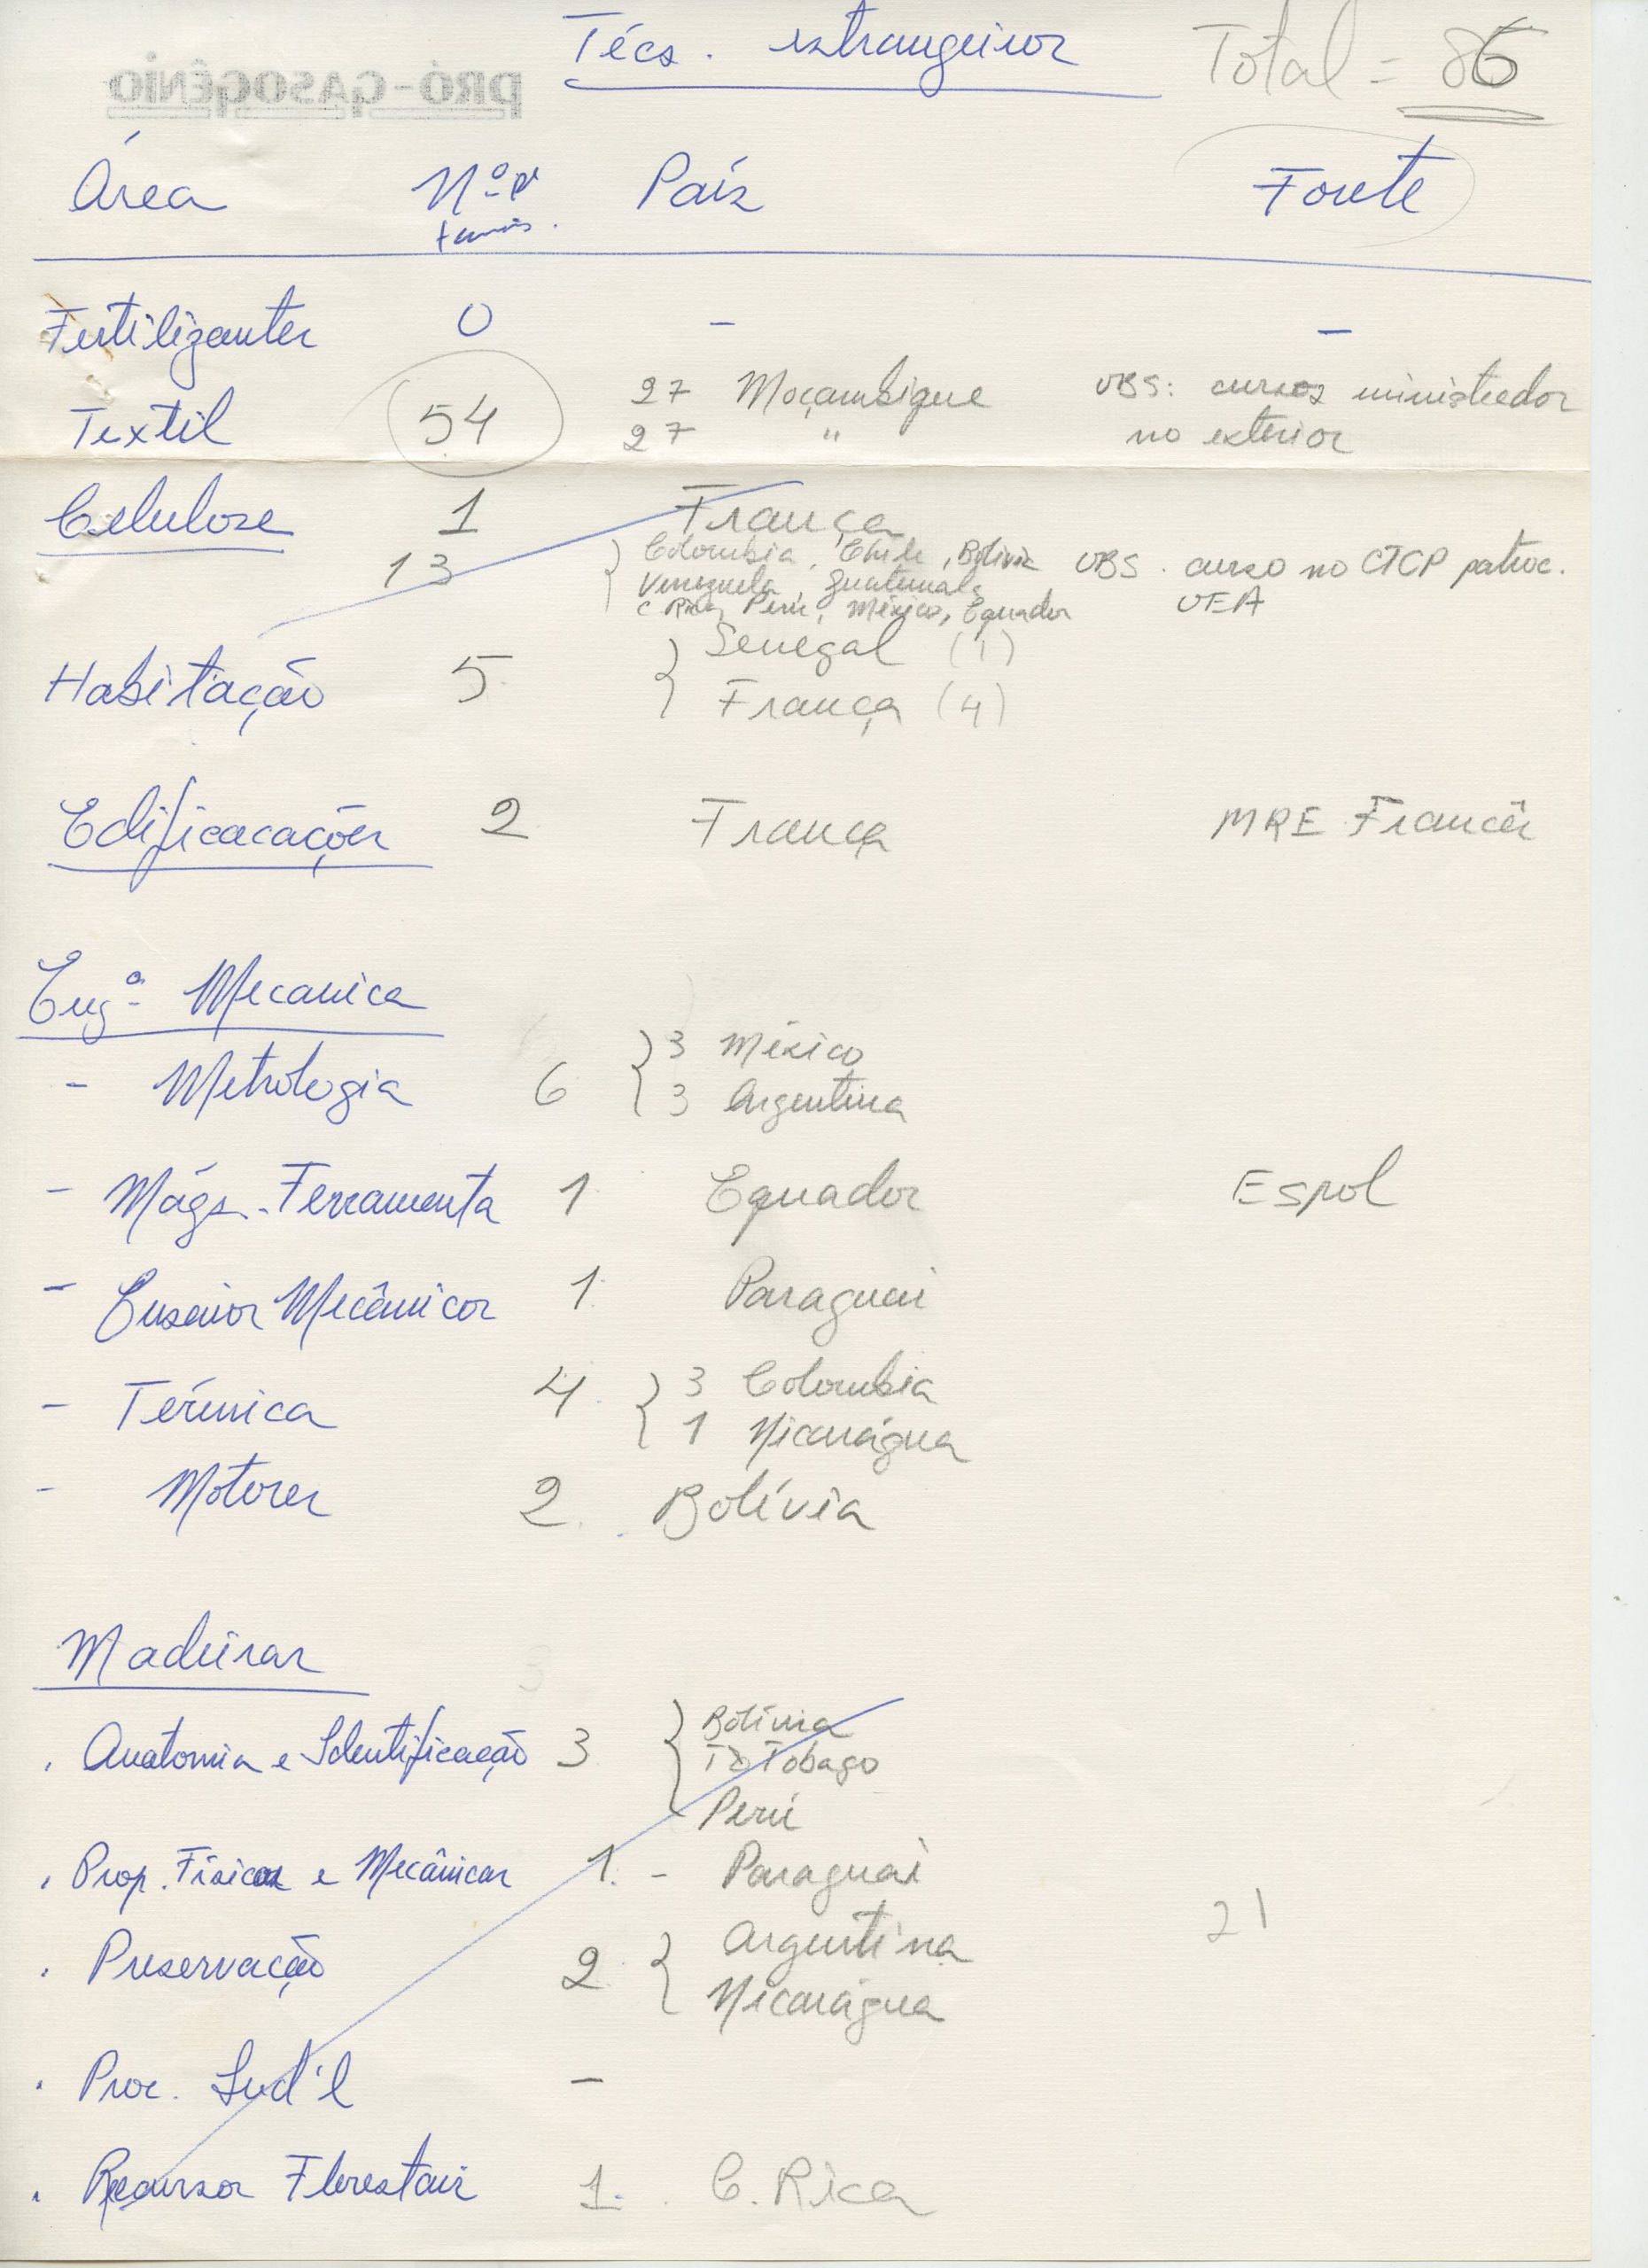 Técs. estrangeiros Total = 86
PRÓ-GASOGÊNIO
Área Nº País Fonte
Fertilizantes 0 - -
Textil 54 27 Moçambique OBS: cursos ministrados
27 " no exterior
Celulose 1 França
13 Colombia, Chile, Bolivia OBS. curso no CTCP patroc.
Venezuela, Guatemala OEA
C Rica, Perú, México, Equador
Senegal (1)
Habitação 5
França (4)
Edificacações 2 França MRE Francês
Engª Mecanica
3 México
- Metrologia 6
3 Argentina
- Máqs. Ferramenta 1 Equador Espol
- Ensaios Mecânicos 1 Paraguai
3 Colombia
- Térmica 4
1 Nicarágua
- Motores 2 Bolívia
Madeiras
Bolívia
. Anatomia e Identificação 3 Tobago
Perú
. Prop. Físicas e Mecânicas 1 - Paraguai
21
Argentina
. Preservação 2
Nicarágua
. Proc. Ind'l -
. Recursos Florestais 1 C. Rica